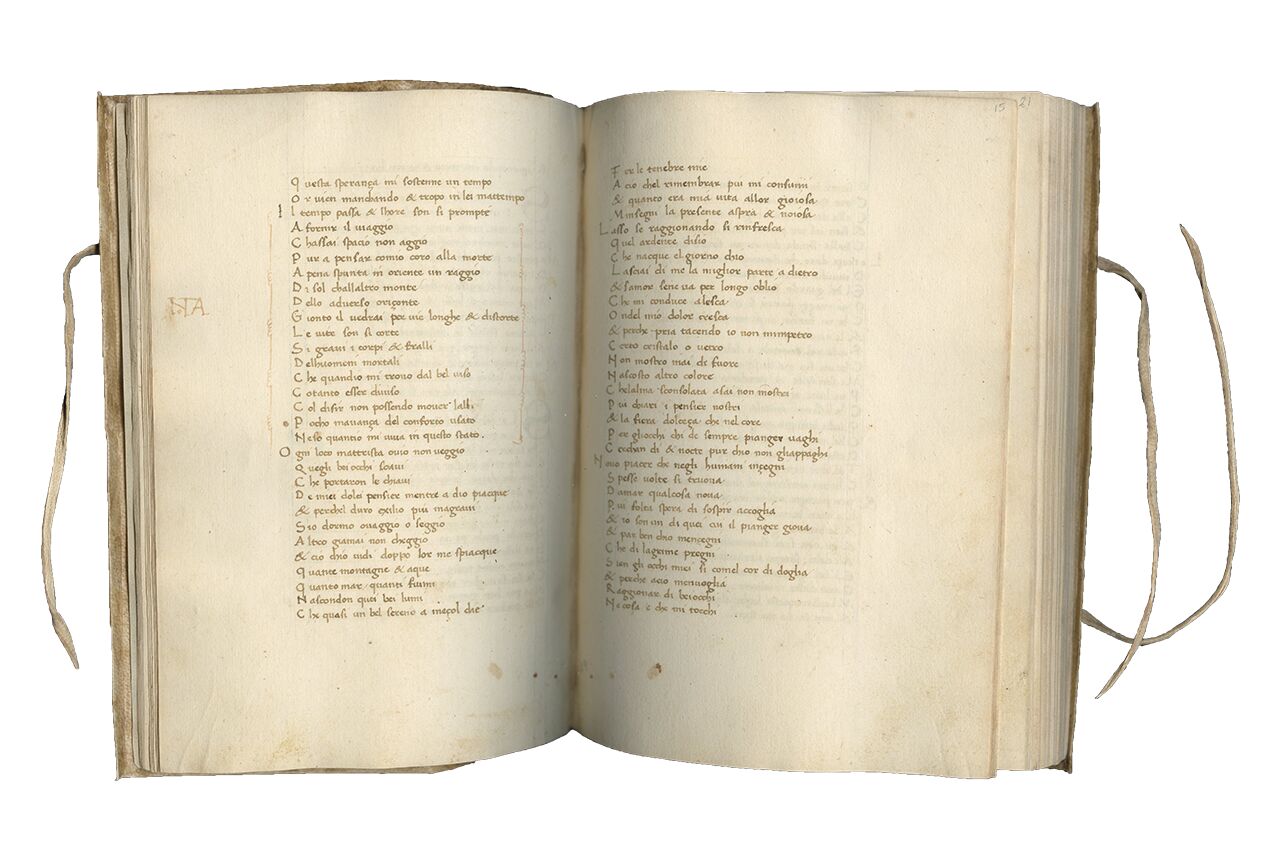 Q uesta sperança mi sostenne un tempo
O r vien manchando & tropo in lei mattempo
I l tempo passa & lhore son si prompte
A fornir il viaggio
C hassai spacio non aggio
P ur a pensar comio coro alla morte
A pena spunta in oriente un raggio
D i sol challaltro monte
D ello adverso oriçonte
G ionto il vedrai per vie longhe & distorte
L e vite son si corte
S i gravi i corpi & fralli
D elhuomeni mortali
C he quandio mi trovo dal bel viso
C otanto esser diviso
C ol disir non possendo mover lalli
P ocho mavança del conforto usato
N e so quantio mi viva in questo stato.
O gni loco mattrista ovio non veggio
Q uegli bei occhi soavi
C he portaron le chiavi
D e miei dolci pensier mentre a dio piacque
& perchel duro exilio piu magravi
S io dormo o vaggio o seggio
A ltro giamai non cheggio
& cio chio vidi doppo lor me spiacque
Q uante montagne & aque
Q uanto mar quanti fiumi
N ascondon quei bei lumi
C he quasi un bel sereno a meçol die
15 21
F er le tenebre mie
A cio chel rimembrar piu mi consumi
& quanto era mia vita allor gioiosa
M insegni la presente aspra & noiosa
L asso se raggionando si rinfresca
Q uel ardente disio
C he nacque el giorno chio
L asciai di me la miglior parte a dietro
& samor sene va per longo oblio
C he mi conduce alesca
O ndel mio dolor cresca
& perche pria tacendo io non mimpetro
C erto cristalo o vetro
N on mostro mai di fuore
N ascosto altro colore
C helalma sconsolata asai non mostri
P iu chiari i pensier nostri
& la fiera dolceça che nel core
P er gliocchi chi de sempre pianger vaghi
C erchan di & nocte pur chio non gliappaghi
N ovo piacer che negli humani ingegni
S pesse volte si truova
D amar qualcosa nova
P iu folta spera di sospir accoglia
& io son un di quei cui il pianger giova
& par ben chio mencegni
C he di lagrime pregni
S ien gli occhi miei si comel cor di doglia
& perche acio menvoglia
R aggionar di beiocchi
N e cosa e che mi tocchi